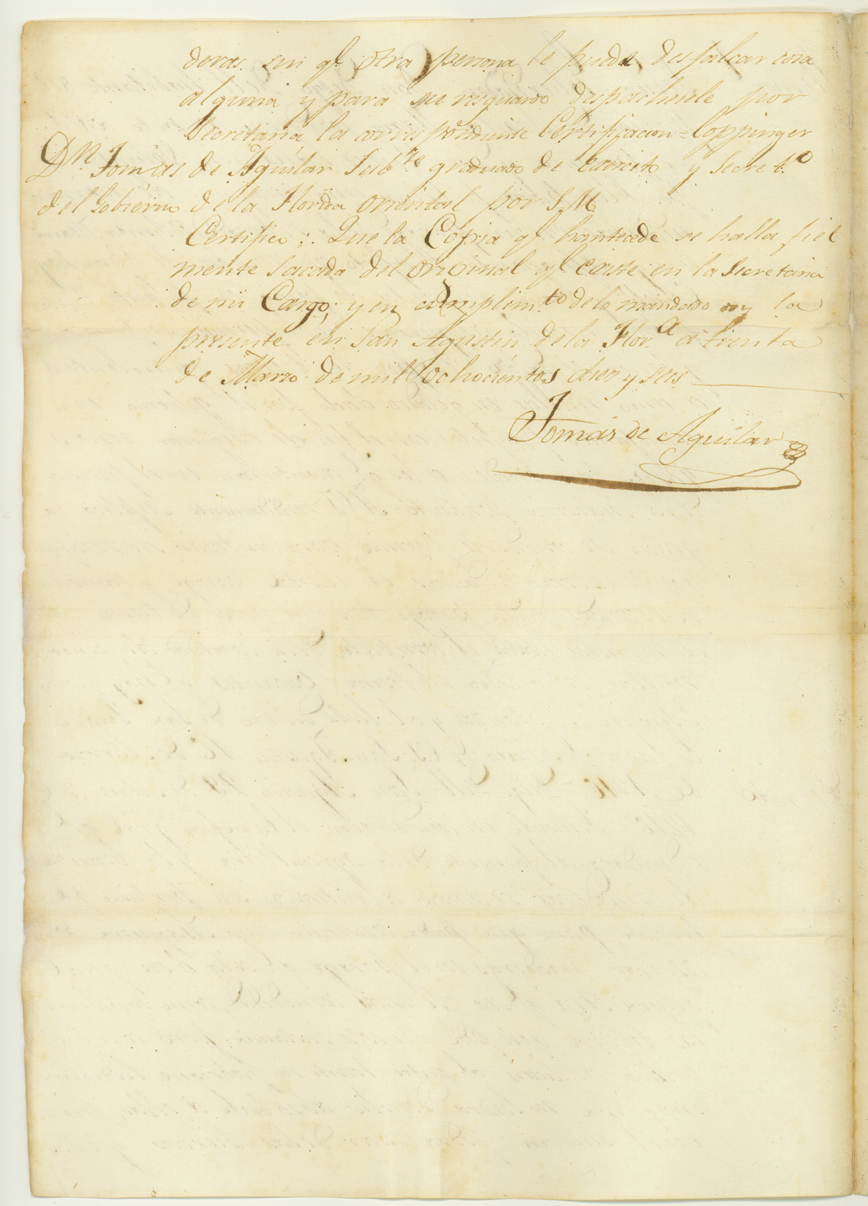 deras sin qe otra persona le pueda desfalcar cosa
alguna y para su resguardo despachesele por
Secretaria la correspondiente Certificacion = Coppinger
Dn Tomas de Aguilar Subte graduado de Exercito y Secreto
del Gobierno de la Florida oriental por S. M.
Certifico: Que la Copia qe antecede se halla fiel
mente sacada del original qe existe en la Secretaria
de mi Cargo; y en cumplimto de lo mandado doy la
presente en San Agustin de la Flora a treinta
de Marzo de mil ochocientos diez y seis
Tomas de Aguilar